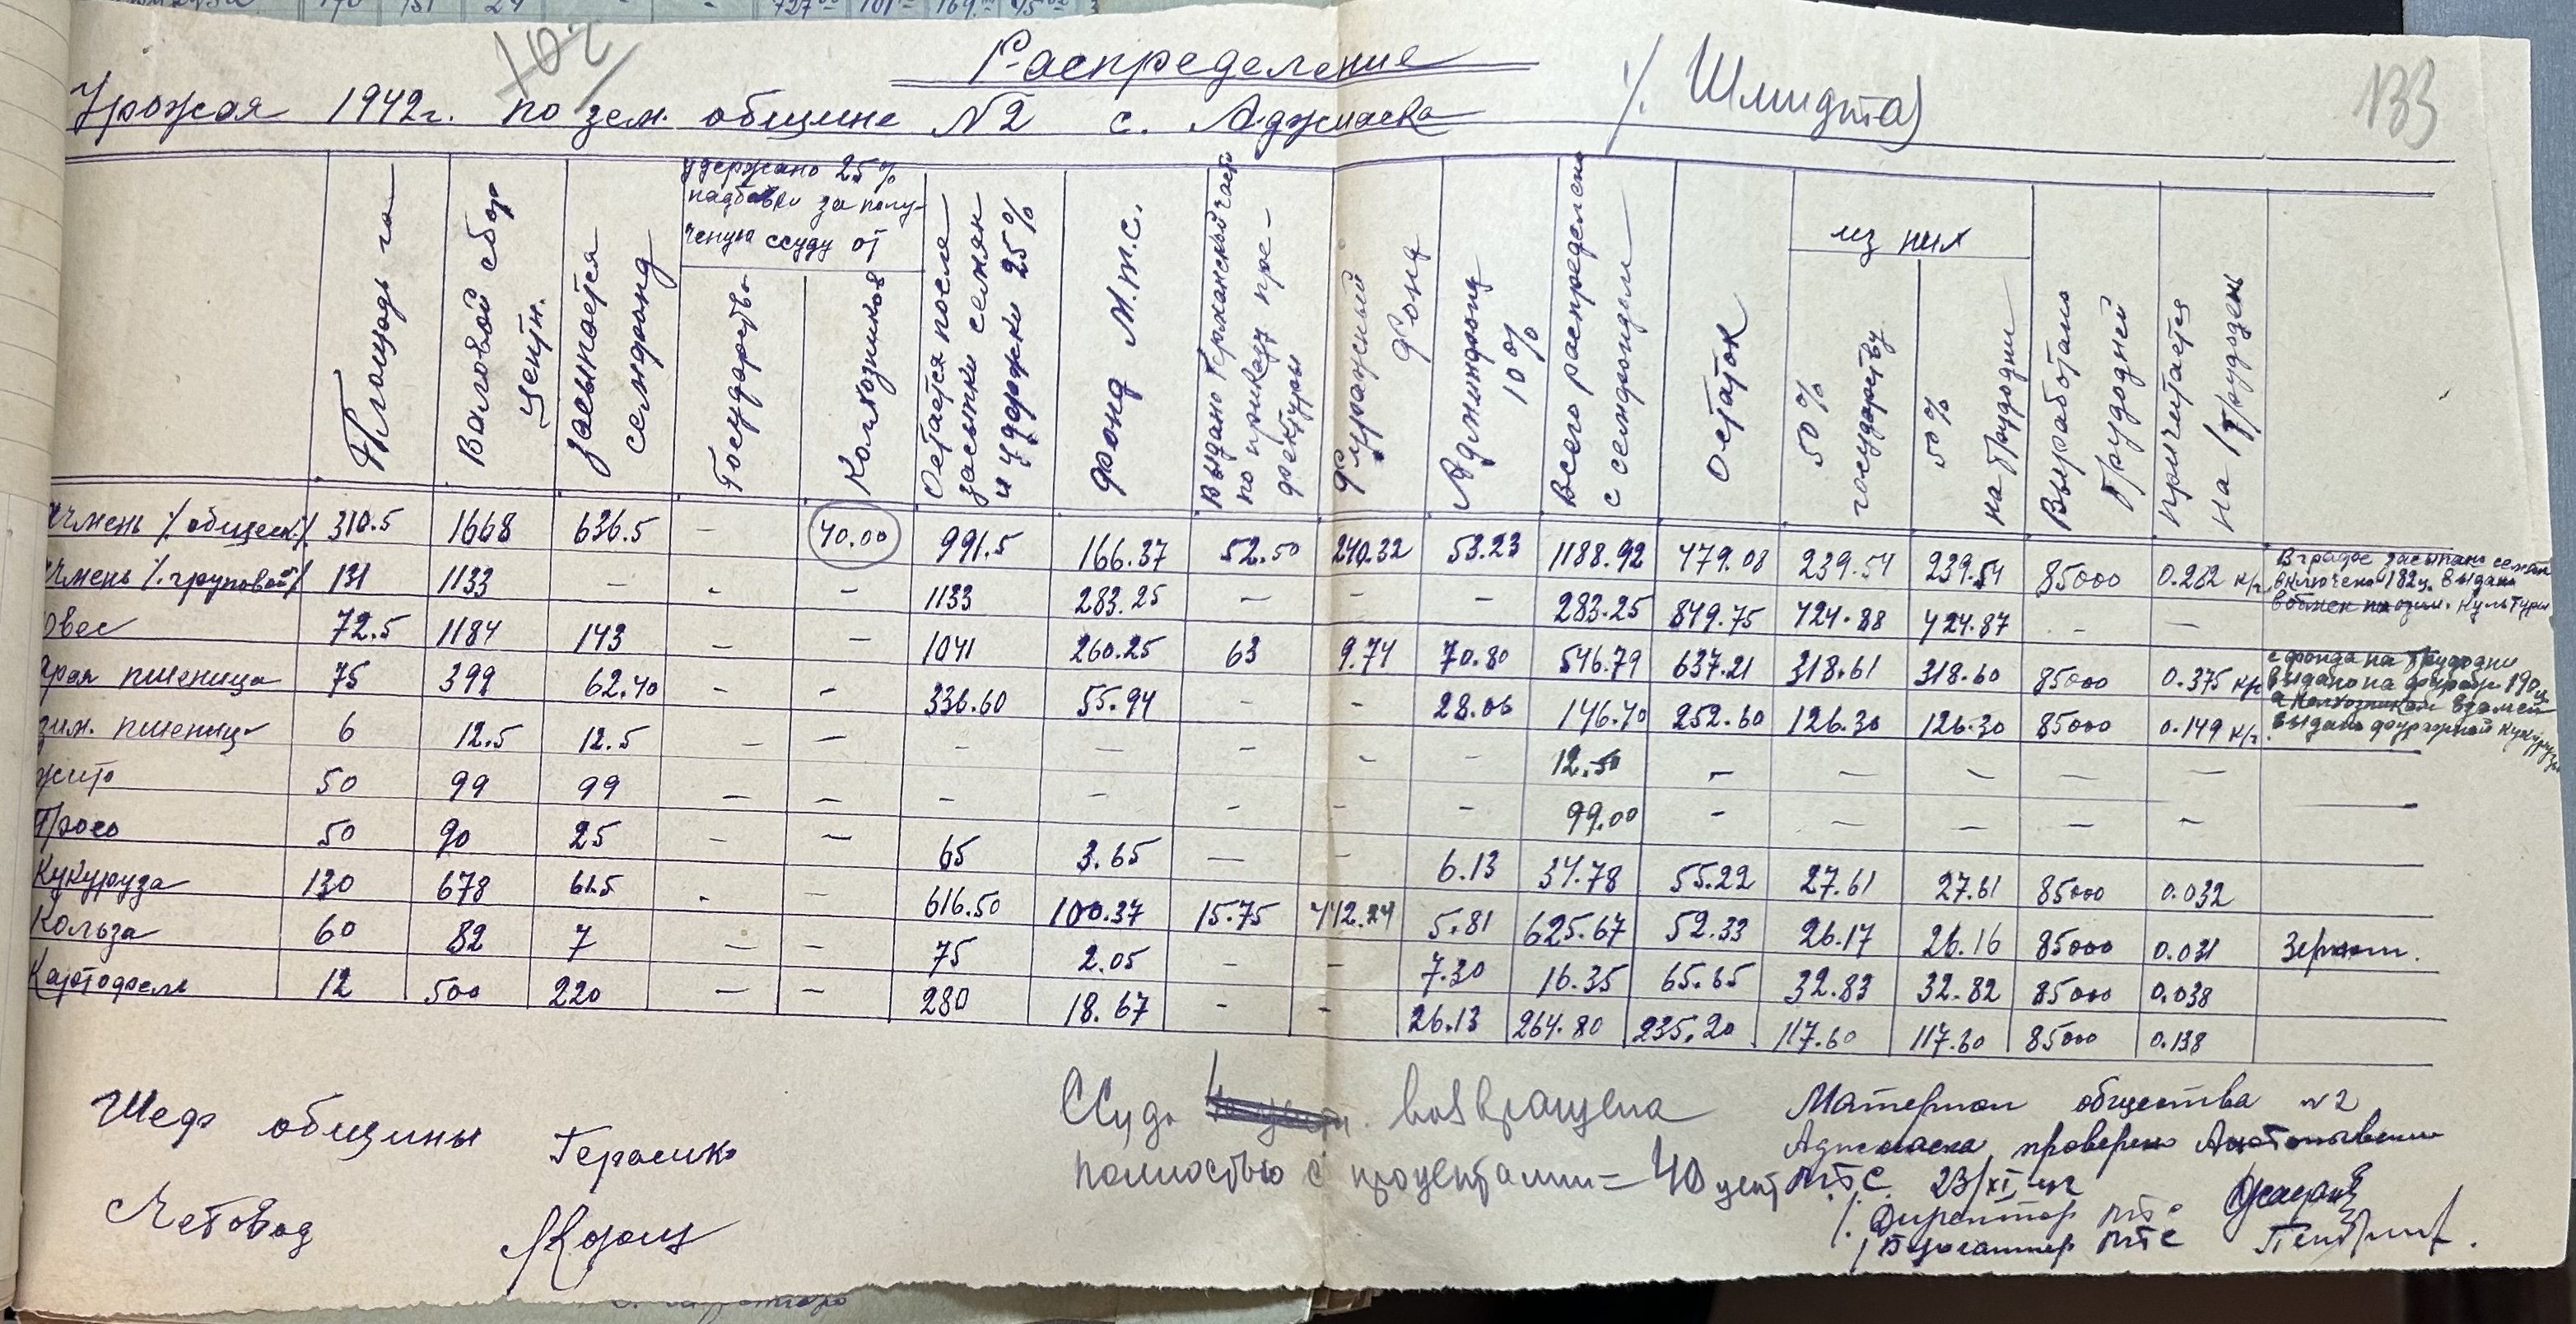 102
133
Распределение
Урожая 1942г. по зем. общине №2 с. Аджиаска /. Шмидта)
Площадь га
Валовой сбор центн.
Засыпается семфонд
Удержано 25% надбавки за полученую ссуду от
Государства
Колхозников
Остается после засыпки семян и удержки 25%
Фонд М.т.с.
Выдано Германской части по приказу префектуры
Фуражный фонд
Админфонд 10%
Всего распределено с семфондом
Остаток
из них
50% государству
50% на трудодни
Выработано трудодней
причитается на 1 трудодень
ячмень /.обществ./ 310.5 1668 636.5 – 40.00 991.5 166.37 52.50 240.32 53.23 1188.92 479.08 239.54 239.54 85000 0.282 кг.
В графе засыпано семян включено 182ц. выдано в обмен на озим. культуры
ячмень /.груповой/ 131 1133 – - – 1133 283.25 – - – 283.25 849.75 424.88 424.87 - –
овес 72.5 1184 143 – – 1041 260.25 63 9.74 70.80 546.79 637.21 318.61 318.60 85000 0.375 кг
с фонда на трудодни выдано на фураж 190ц а колхозникам взамен выдано фуражной кукурузы
ярая пшеница 75 399 62.40 – - 336.60 55.94 - - 28.06 146.40 252.60 126.30 126.30 85000 0.149 кг.
зим. пшениц. 6 12.5 12.5 – – – – – - - 12.50 – – – – –
жито 50 99 99 – – - - - - - 99.00 - – – – -
Просо 50 90 25 – – 65 3.65 – - 6.13 34.78 55.22 27.61 27.61 85000 0.032
Кукуруза 130 678 61.5 - – 616.50 100.37 15.75 442.24 5.81 625.67 52.33 26.17 26.16 85000 0.031 Зерном.
Кользa 60 82 7 – – 75 2.05 - – 7.30 16.35 65.65 32.83 32.82 85000 0.038
Картофель 12 500 220 – – 280 18.67 - - 26.13 264.80 235.20 117.60 117.60 85000 0.138
Шеф общины Герасимо
Счетовод
Ссуда возвращена
полностью с процентами = 40 цент
Материал общества №2
Аджиаска проверено
МТС 23/XI 42
/. Директор МТС
/ Бухгалтер МТС